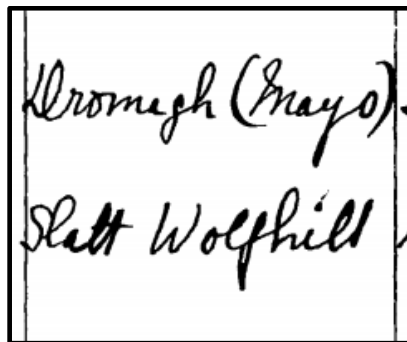 Dromagh (Mayo)
Slatt Wolfhill